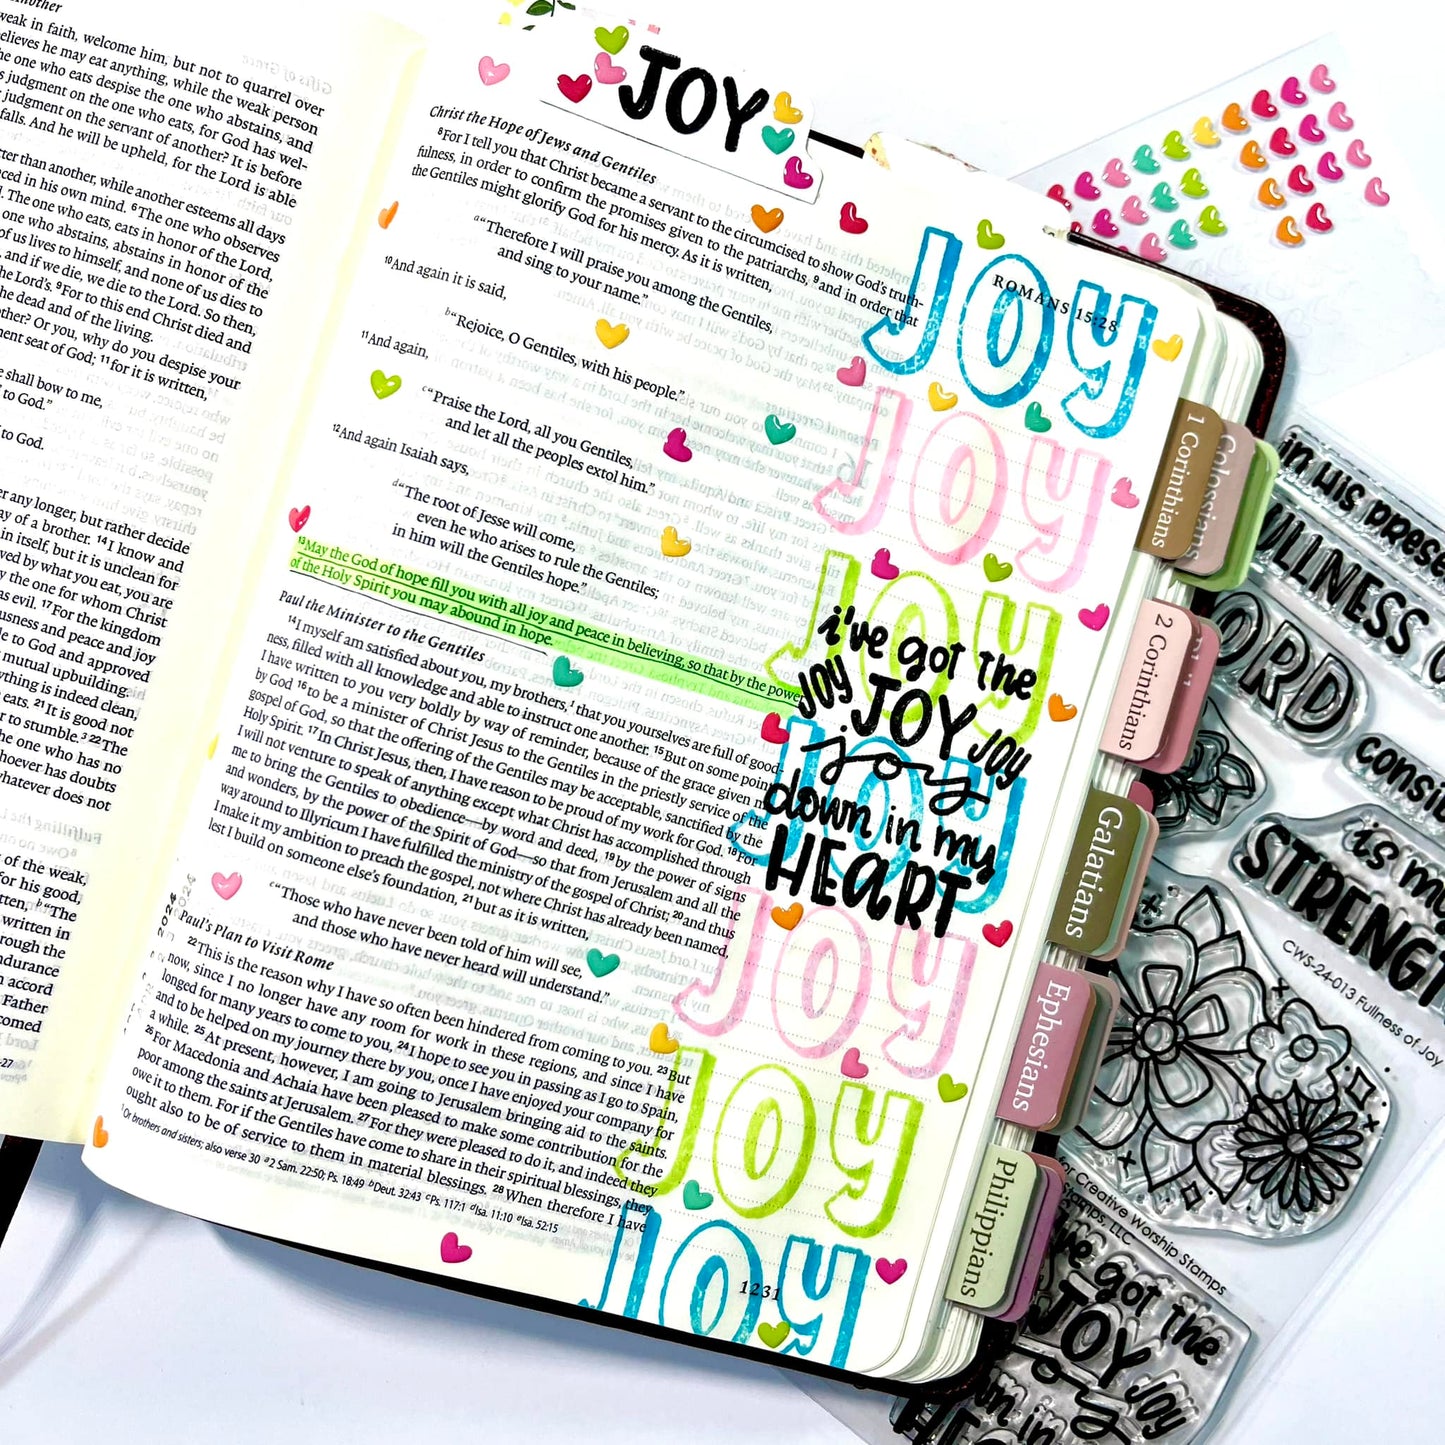 nother
weak in faith, welcome him, but not to quarrel over
elieves he may eat anything, while the weak person
he one who eats despise the one who abstains, and
judgment on the one who eats, for God has wel-
judgment on the servant of another? It is before
falls. And he will be upheld, for the Lord is able
tter than another, while another esteems all days
nced in his own mind. 6 The one who observes
The one who eats, eats in honor of the Lord,
one who abstains, abstains in honor of the
of us lives to himself, and none of us dies to
and if we die, we die to the Lord. So then,
the Lord's. 9 For to this end Christ died and
the dead and of the living.
other? Or you, why do you despise your
ment seat of God; 11 for it is written,
e shall bow to me,
to God."
to God.
er any longer, but rather decide
ay of a brother. 14 I know and
in itself, but it is unclean for
ved by what you eat, you are
y the one for whom Christ
as evil. 17 For the kingdom
ousness and peace and joy
le to God and approved
mutual upbuilding.
ything is indeed clean,
eats. 21 It is good not
r to stumble. 22 The
the one who has no
hoever has doubts
whatever does not
of the weak,
for his good,
tten, b "The
written in
rough the
ndurance
accord
Father
comed
-27
JOY
Christ the Hope of Jews and Gentiles
8 For I tell you that Christ became a servant to the circumcised to show God's truth-
fulness, in order to confirm the promises given to the patriarchs, 9 and in order that
the Gentiles might glorify God for his mercy. As it is written,
a "Therefore I will praise you among the Gentiles,
and sing to your name."
10 And again it is said,
b "Rejoice, O Gentiles, with his people."
11 And again,
c "Praise the Lord, all you Gentiles,
and let all the peoples extol him."
12 And again Isaiah says,
d "The root of Jesse will come,
even he who arises to rule the Gentiles;
in him will the Gentiles hope."
13 May the God of hope fill you with all joy and peace in believing, so that by the power
of the Holy Spirit you may abound in hope.
Paul the Minister to the Gentiles
14 I myself am satisfied about you, my brothers, 1 that you yourselves are full of good-
ness, filled with all knowledge and able to instruct one another. 15 But on some points
I have written to you very boldly by way of reminder, because of the grace given me
by God 16 to be a minister of Christ Jesus to the Gentiles in the priestly service of the
gospel of God, so that the offering of the Gentiles may be acceptable, sanctified by the
Holy Spirit. 17 In Christ Jesus, then, I have reason to be proud of my work for God. 18 For
I will not venture to speak of anything except what Christ has accomplished through
me to bring the Gentiles to obedience—by word and deed, 19 by the power of signs
and wonders, by the power of the Spirit of God—so that from Jerusalem and all the
way around to Illyricum I have fulfilled the ministry of the gospel of Christ; 20 and thus
I make it my ambition to preach the gospel, not where Christ has already been named,
lest I build on someone else's foundation, 21 but as it is written,
e "Those who have never been told of him will see,
and those who have never heard will understand."
Paul's Plan to Visit Rome
22 This is the reason why I have so often been hindered from coming to you. 23 But
now, since I no longer have any room for work in these regions, and since I have
longed for many years to come to you, 24 I hope to see you in passing as I go to Spain,
and to be helped on my journey there by you, once I have enjoyed your company for
a while. 25 At present, however, I am going to Jerusalem bringing aid to the saints.
26 For Macedonia and Achaia have been pleased to make some contribution for the
poor among the saints at Jerusalem. 27 For they were pleased to do it, and indeed they
owe it to them. For if the Gentiles have come to share in their spiritual blessings, they
ought also to be of service to them in material blessings. 28 When therefore I have
1 Or brothers and sisters; also verse 30 a 2 Sam. 22:50; Ps. 18:49 b Deut. 32:43 c Ps. 117:1 d Isa. 11:10 e Isa. 52:15
ROMANS 15:28
JOY
JOY
JOY
i've got the
JOY JOY JOY
joy
down in my
HEART
JOY
JOY
JOY
JOY
1231
1 Corinthians
Colossians
2 Corinthians
Galatians
Ephesians
Philippians
in His prese
ULLNESS O
ORD
consid
is my
STRENGT
CWS-24-013 Fullness of Joy
for Creative Worship Stamps
Stamps, LLC
ve got the
JOY JOY
wn in
HE